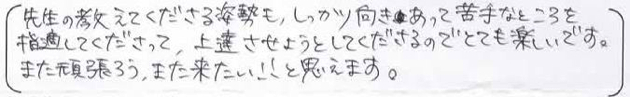 先生の教えてくださる姿勢も、しっかり向きあって苦手なところを
指適してくださって、上達させようとしてくださるのでとても楽しいです。
また頑張ろう、また来たい!!と思えます。